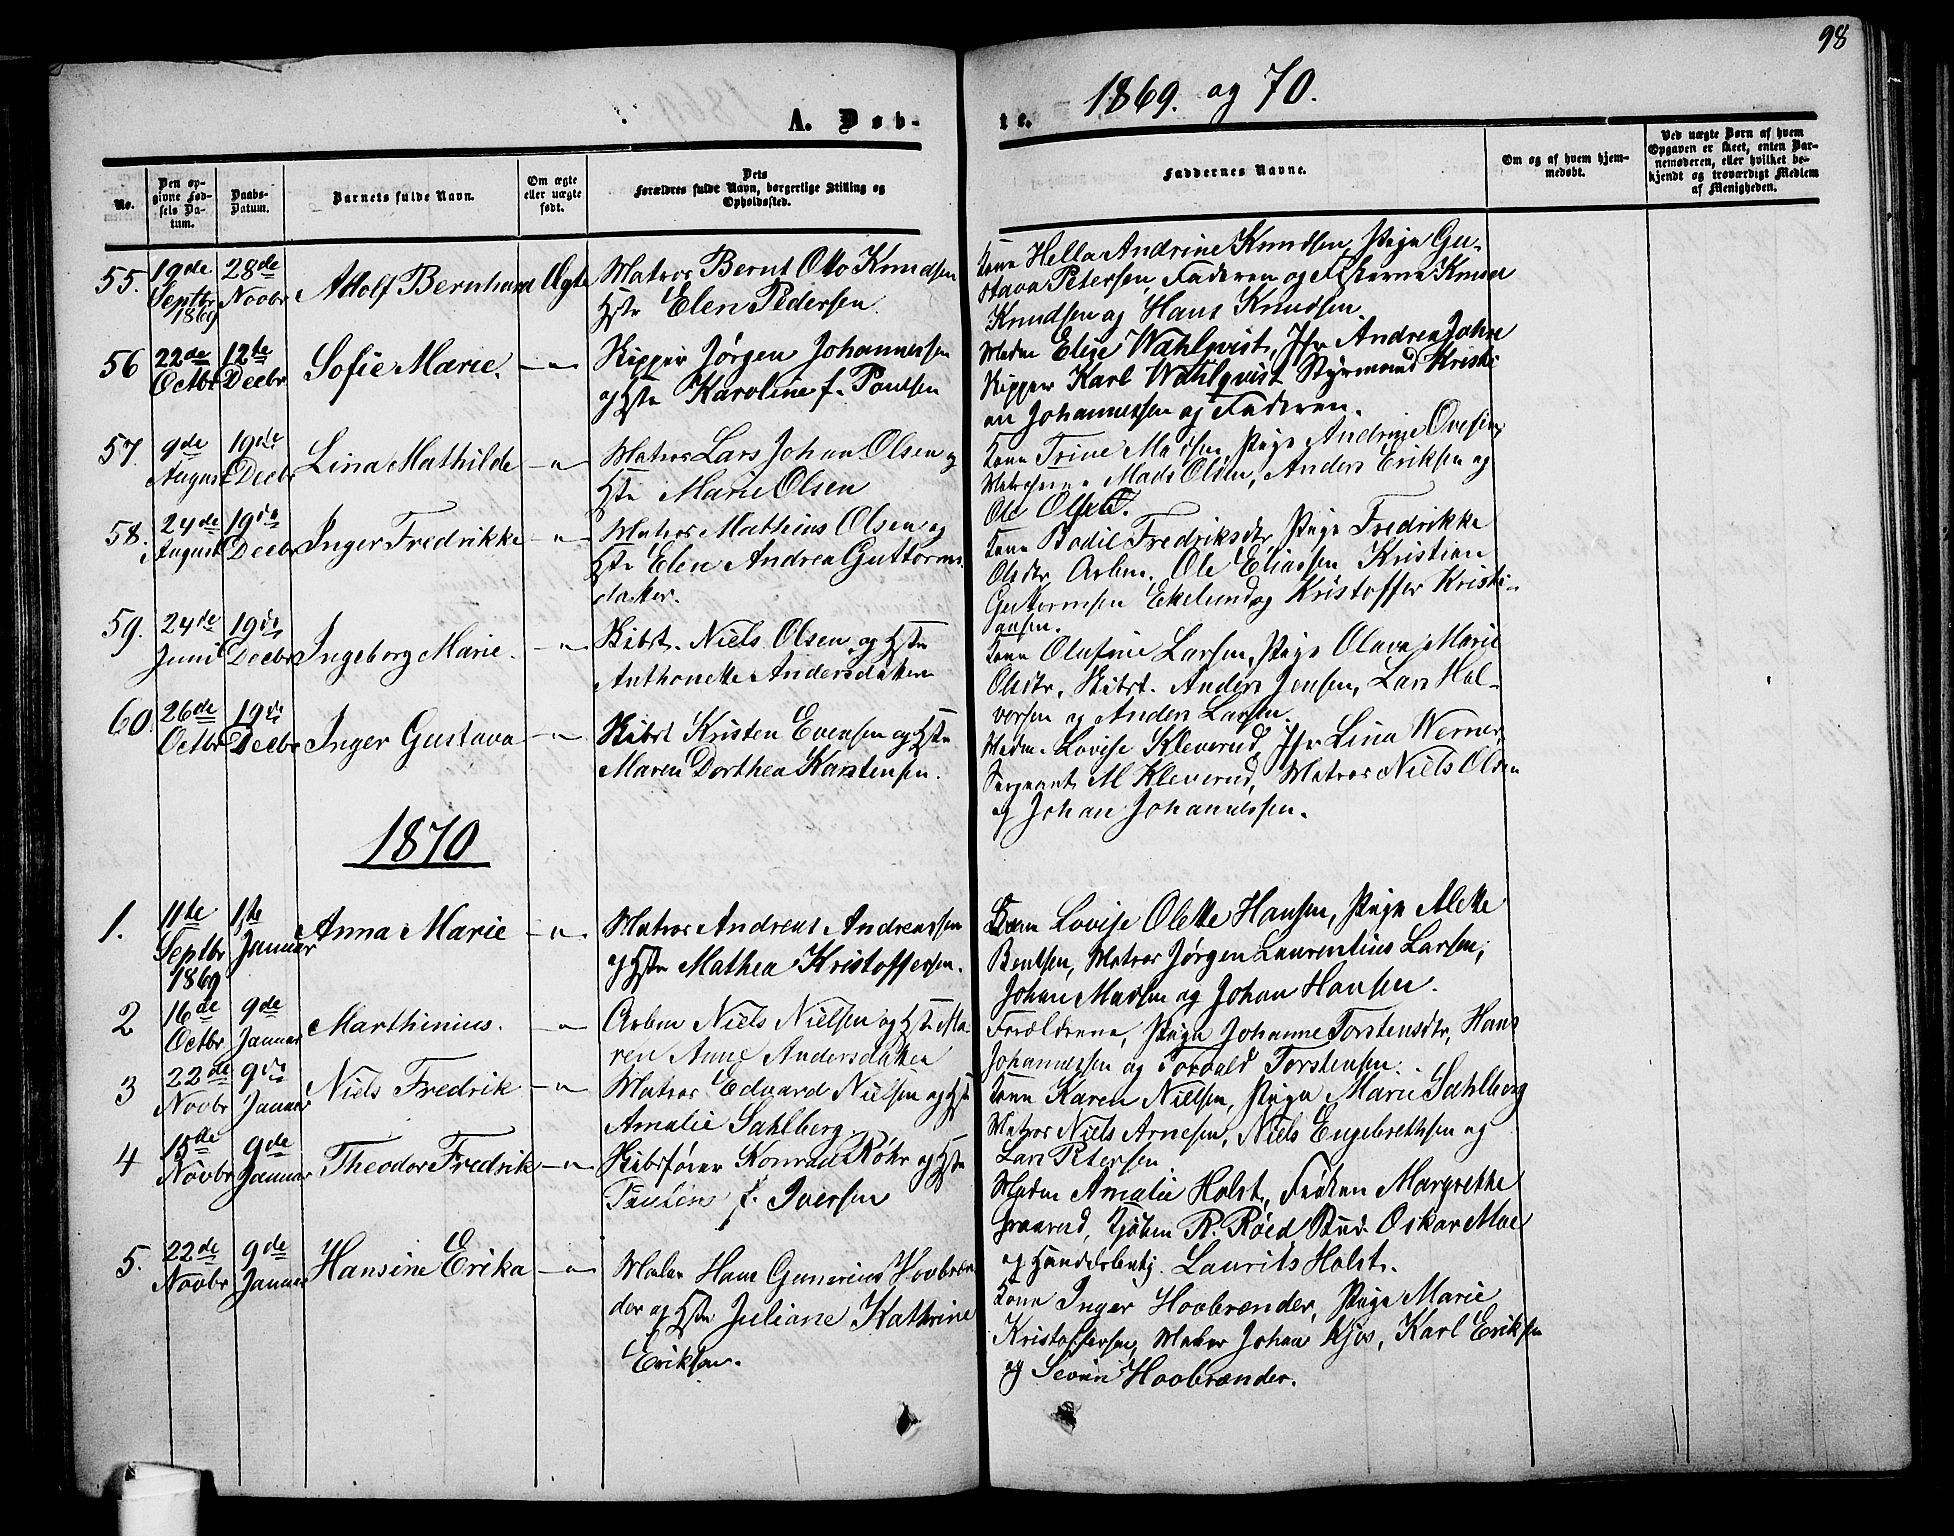 98
1869. og 70.
A. Døb-
te.
No.
Den op-
givne Fød-
sels Da-
tum.
Daabs-
Datum.
Barnets fulde Navn.
Om ægte
eller uægte
født.
Dets
Forældres fulde Navn, borgerlige Stilling og
Opholdssted.
Faddernes Navne.
Om og af hvem hjem-
medøbt.
Ved uægte Børn af hvem
Opgaven er skeet, enten Bar-
nemoderen, eller hvilket be-
kjendt og troværdigt Medlem
af Menigheden.
55. 19de Septbr 1869 28de Novbr Adolf Bernhard Ægte Matros Bernt Otto Knudsen
Hstr Elen Pedersen.
Kone Hella Andrine Knudsen, Pige Gu-
stava Petersen, Faderen og Fiskerne Knud
Knudsen og Hans Knudsen.
56 22de Octbr 12te Decbr Sofie Marie. —"— Skipper Jørgen Johannessen
og Hstr Karoline f. Paulsen
Madm Elise Wahlqvist, Jfr Andrea Johne
Skipper Karl Wahlqvist Styrmand Kristi
an Johannessen og Faderen.
57. 9de August 19de Decbr Lina Mathilde —"— Matros Lars Johan Olsen og
Hstr Marie Olsen
Kone Trine Madsen, Pige Andrine Ovesen,
Matroserne Mads Olsen, Anders Eriksen og
Ole Olsen.
58. 24de August 19de Decbr Inger Fredrikke —"— Matros Mathius Olsen og
Hstr Elen Andrea Guttorms
datter.
Kone Bodil Fredriksdtr, Pige Fredrikke
Olsdtr, Arbm. Ole Eliassen, Kristian
Guttormsen Ekelund og Kristoffer Kristi-
ansen.
59. 24de Juni 19de Decbr Ingeborg Marie. —"— Skibst. Niels Olsen, og Hstr
Anthonette Andersdatter
Kone Olufine Larsen, Pige Olava Marie
Olsdtr, Skibst. Anders Jensen, Lars Hal-
vorsen og Anders Larsen.
60. 26de Octbr 19de Decbr Inger Gustava —"— Skibst Kristen Evensen og Hstr
Maren Dorthea Karstensen.
Madm. Lovise Kleverud, Jfr Lina Werner,
Sergeant M Kleverud, Matros Niels Olsen
og Johan Johannessen.
1870
1. 11te Septbr 1869 1ste Januar Anna Marie —"— Matros Andreas Andreassen
og Hstr Mathea Kristoffersen.
Kone Lovise Olette Hansen, Pige Alette
Bentsen, Matros Jørgen Laurentius Larsen,
Johan Madsen og Johan Hansen.
2 16de Octbr 9de Januar Marthinius. —"— Arbm Niels Nielsen og Hstr Ma-
ren Anne Andersdatter
Forældrene, Pige Johanne Torstensdtr, Hans
Johannessen og Torvald Torstensen.
3 22de Novbr 9de Januar Niels Fredrik —"— Matros Edvard Nielsen og Hstr
Amalie Sahlberg
Kone Karen Nielsen, Pige Marie Sahlberg
Matros Niels Arnesen, Niels Engebrethsen og
Lars Petersen
4 15de Novbr 9de Januar Theodor Fredrik —"— Skibsfører Konrad Röhr og Hstr
Pauline f. Iversen
Madm Amalie Holst, Frøken Margrethe
Graarud, Kjøbm R. Røed Stud. Oskar Moe
og Handelsbetj. Laurits Holst.
5. 22de Novbr 9de Januar Hansine Erika —"— Maler Hans Gunerius Hovbræn
der og Hstr Juliane Kathrine
Eriksen.
Kone Inger Hovbrænder, Pige Marie
Kristoffersen, Maler Johan Kjos, Karl Eriksen
og Severin Hovbrænder.